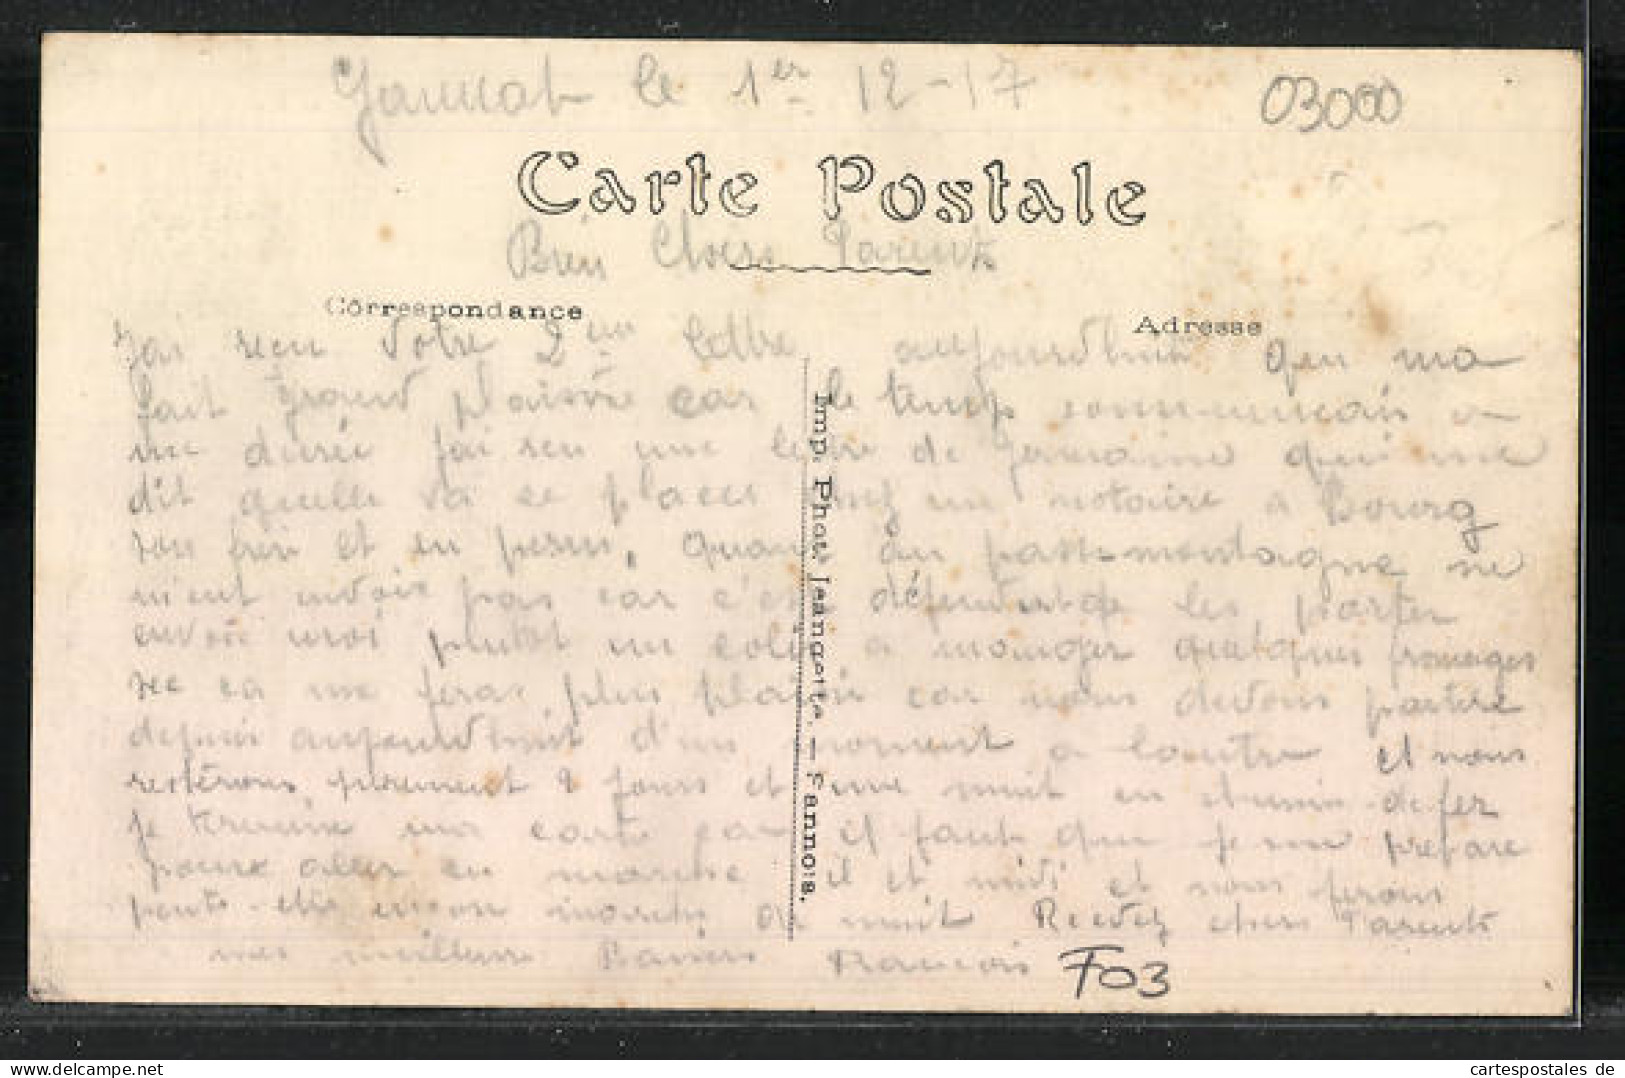 Gannat le 1er 12-17
03000
Carte Postale
Bien Chers Parents
Correspondance
Adresse
J'ai reçu votre 2eme lettre aujourd'hui qui ma
fait grand plaisir car le temp commencais a
me durée j'ai reçu une lettre de Germaine qui me
dit quelle va se placer chez un notaire a Bourg
son frère et en perm. Quand au passe-montagne ne
m'ent envoie pas car c'est défendut de les porter
envoie moi plutot un colis a manger quelques fromages
sec ca me feras plus plaisir car nous devons partire
depuis aujourd'hui d'un moment a lautre et nous
resterons surement 2 jours et une nuit en chemin de fer
je termine ma carte car il faut que je me prepare
pour aller en marche il et midi et nous ferons
peut-etre encore marche de nuit Recevez chers Parents
mes meilleurs Baisers François
F03
Imp. Phot. Jeangette. — Fannois.
cartespostales de